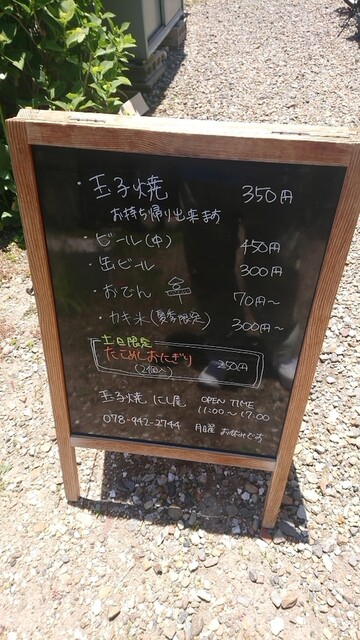 ・玉子焼 350円
お持ち帰り出来ます
・ビール(中) 450円
・缶ビール 300円
・おでん 70円～
・カキ氷(夏季限定) 300円～
土日限定
たこめしおにぎり 250円
(2個入)
玉子焼 にし尾 OPEN TIME
11:00～17:00
078-942-2744 月曜 お休みです